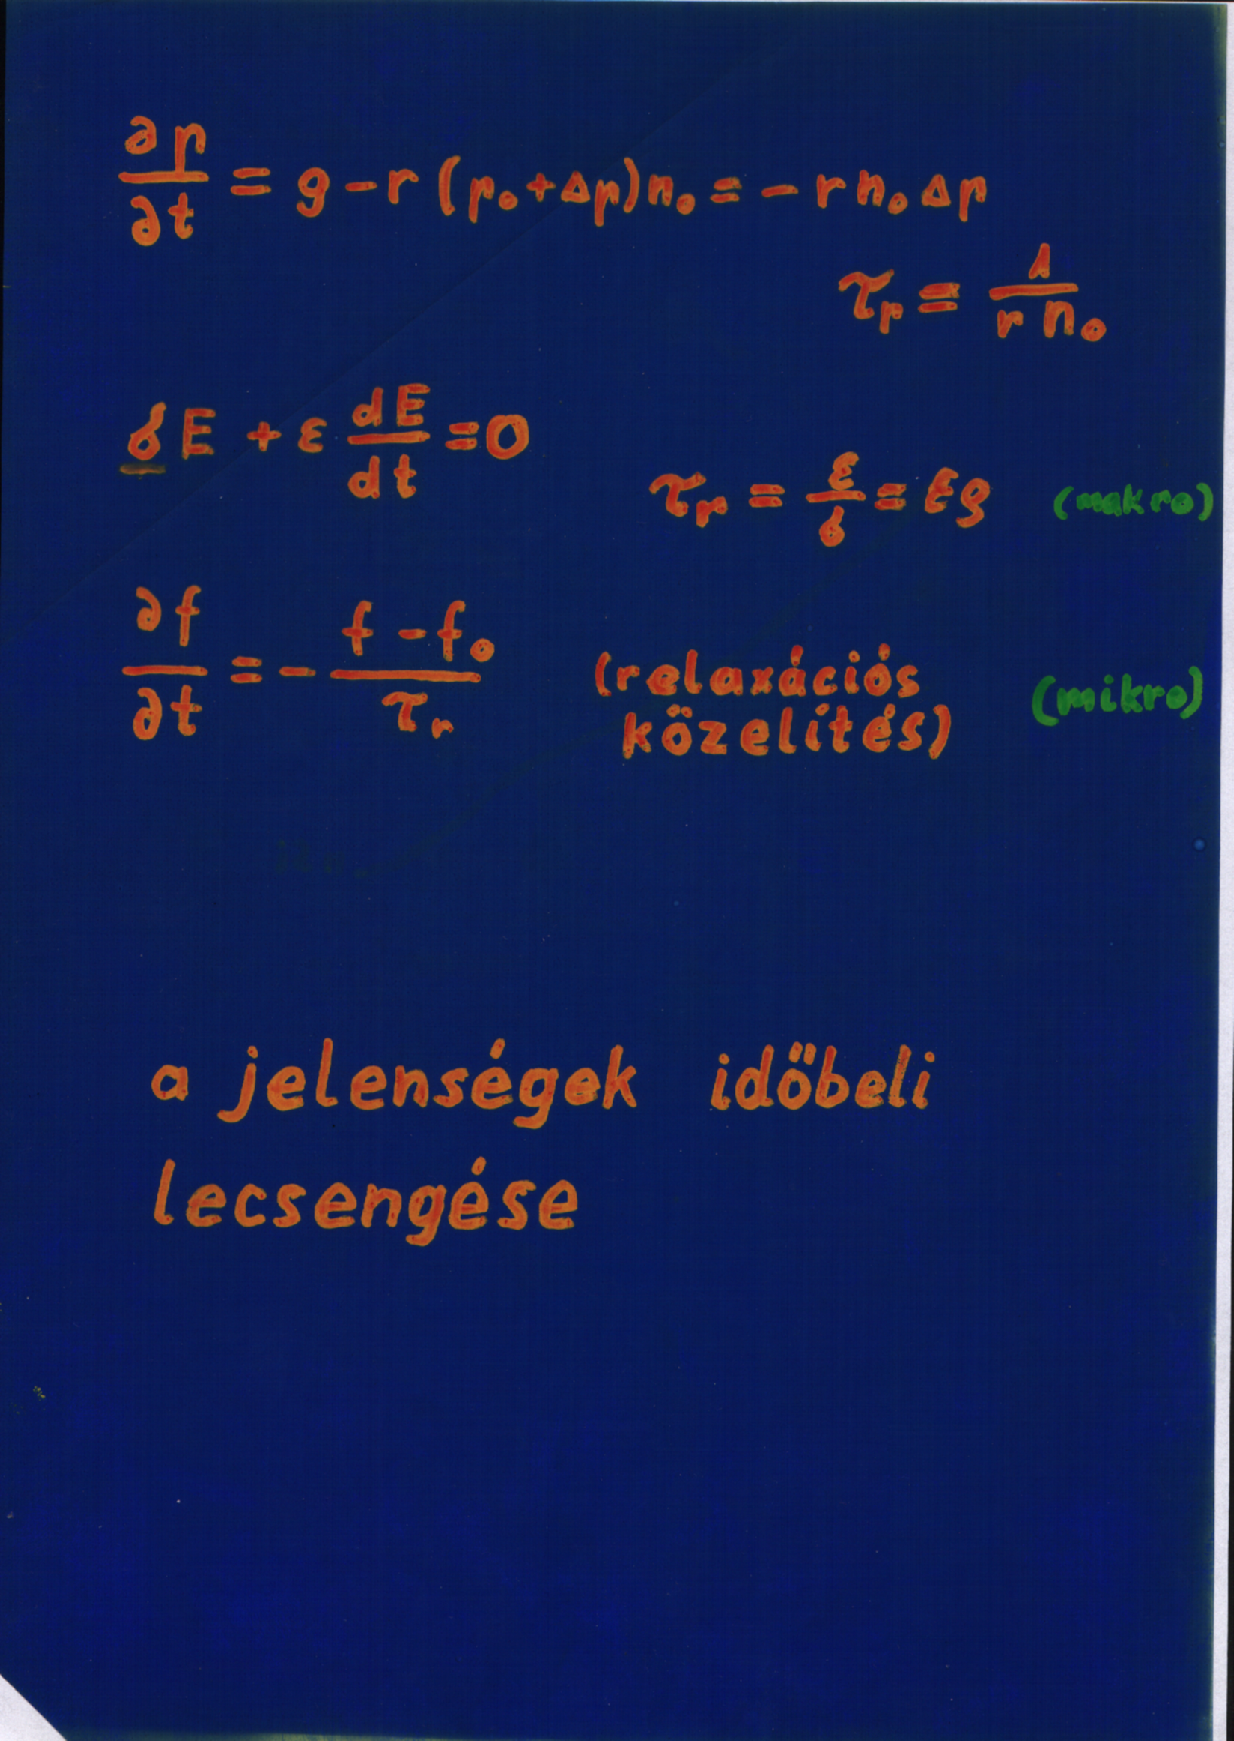 ∂p/∂t = g - r (p₀ + Δp) n₀ = - r n₀ Δp
τₚ = 1/(r n₀)
σE + ε dE/dt = 0
τᵣ = ε/σ = ερ (makro)
∂f/∂t = - (f - f₀)/τᵣ (relaxációs közelítés) (mikro)
a jelenségek időbeli
lecsengése